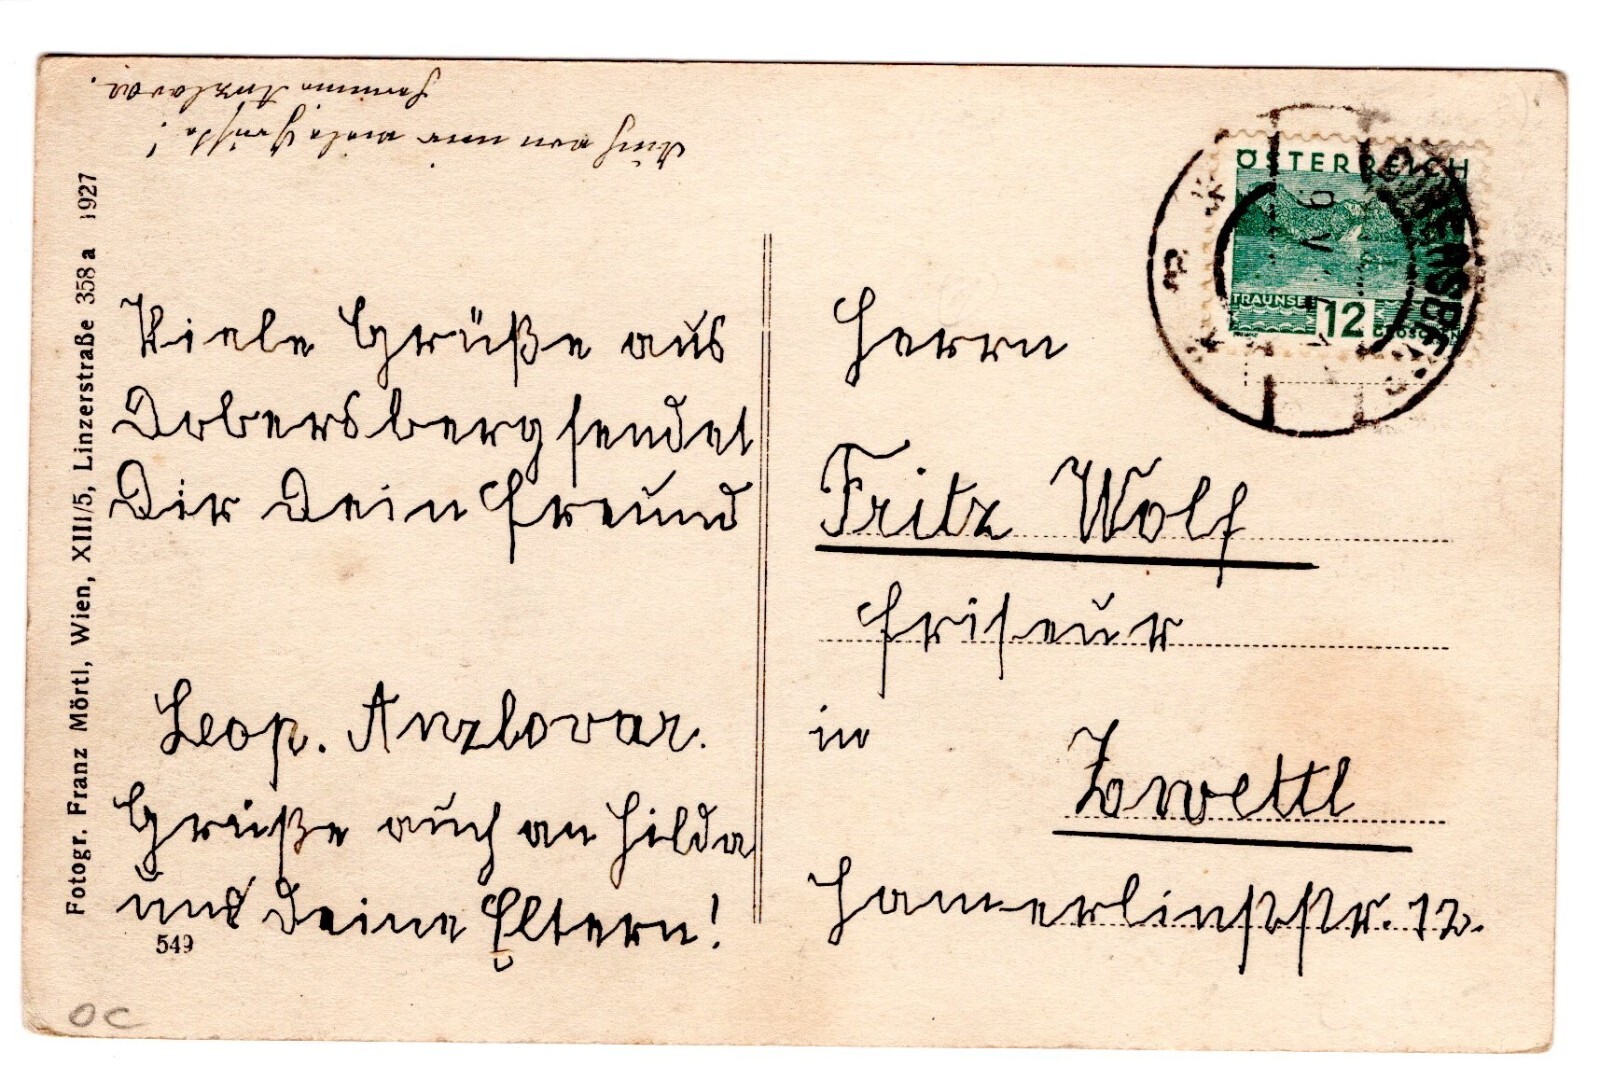 Auch von mir viele Grüße!
Anzlovar.
Fotogr. Franz Mörtl, Wien, XIII/5, Linzerstraße 358 a 1927
Viele Grüße aus
Dobersberg sendet
Dir Dein Freund
Leop. Anzlovar.
Grüße auch an Hilda
und Deine Eltern!
549
OC
ÖSTERREICH
TRAUNSEE
12 GROSCHEN
Herrn
Fritz Wolf
Friseur
in
Zwettl
Hamerlingstr. 12.